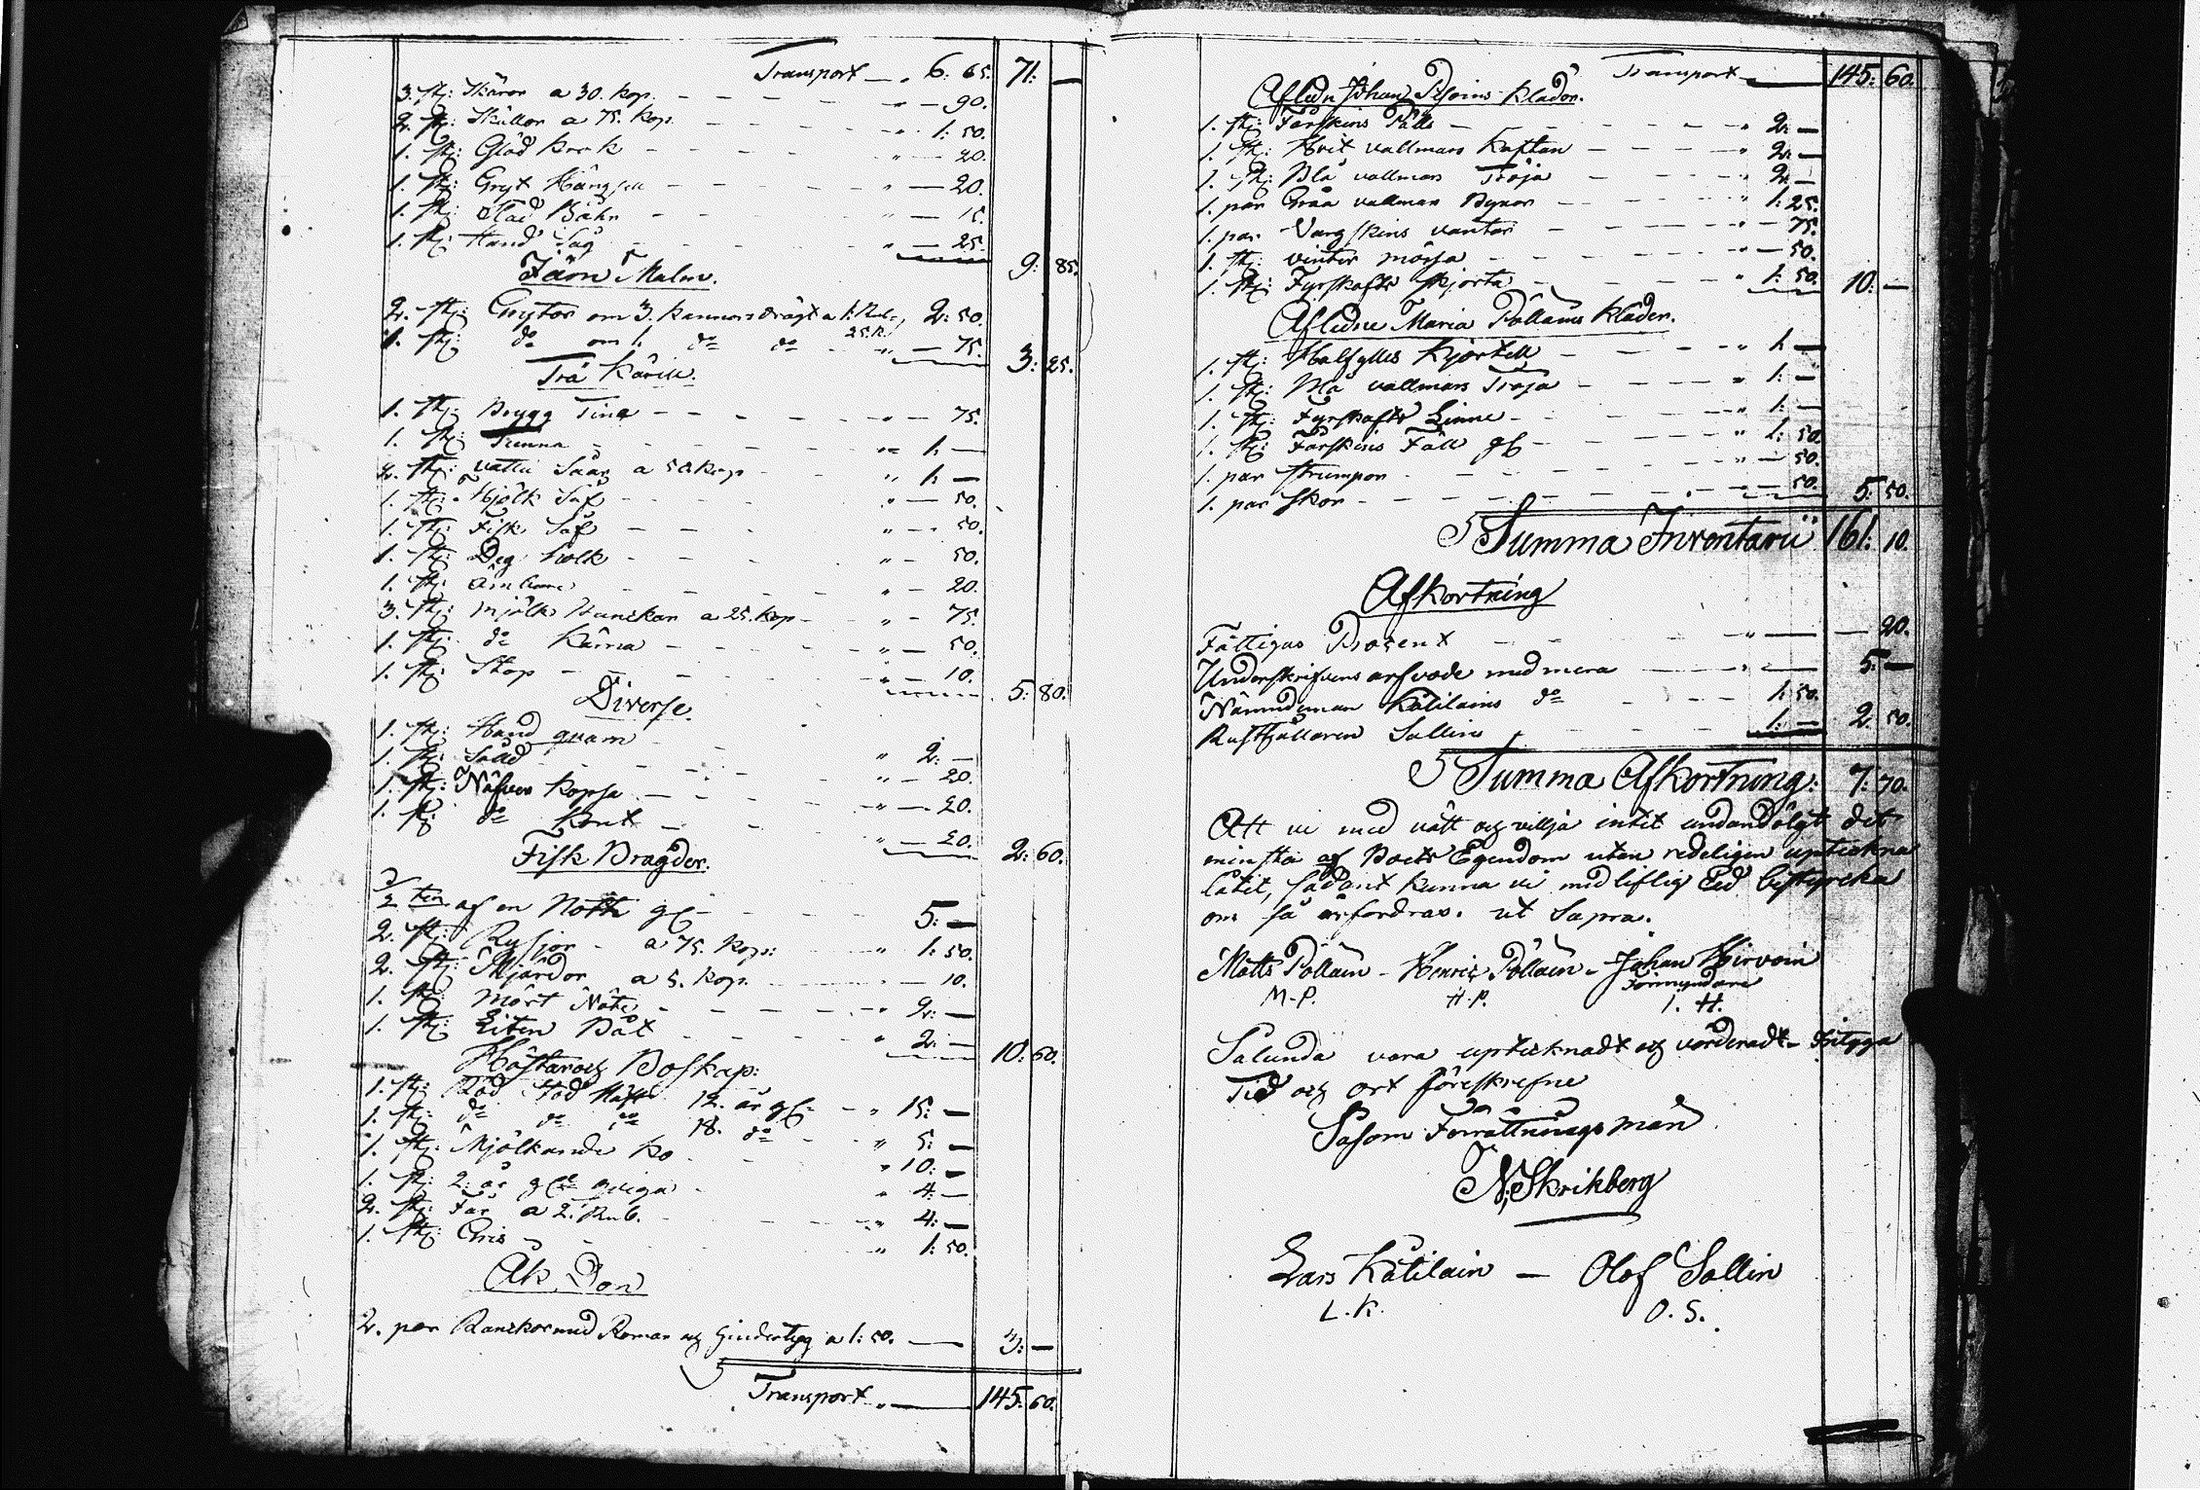 Transport — „ 6: 65. 71: —
3. stÿ: Skäror a 30. kop. „ — 90.
2. stÿ: Skällor a 75. kop. „ 1: 50.
1. stÿ: Glöd krok „ — 20.
1. stÿ: Gryt Häng „ — 20.
1. stÿ: Stad Båhr „ — 15.
1. stÿ: Hand Såg „ — 25. 9: 85.
Järn Malm.
2. stÿ: Grytor om 3. kannors drägt a 1. Rub. 25 k. 2: 50.
1. stÿ: do om 1. do do „ — 75. 3: 25.
Trä Käril.
1. stÿ: Brygg Tina „ — 75.
1. stÿ: Tunna „ 1. —
2. stÿ: vattu Såar a 50 kop „ 1: —
1. stÿ: Mjölk Så „ — 50.
1. stÿ: Fisk Så „ — 50.
1. stÿ: Deg holk „ — 50.
1. stÿ: Ämbare „ — 20.
3. stÿ: mjölk Bunckar a 25. kop „ — 75.
1. stÿ: do Kärna „ — 50.
1. stÿ: Stop „ — 10. 5: 80.
Diverse.
1. stÿ: Hand qvarn „ 2: —
1. stÿ: Såld „ — 20.
1. stÿ: Näfver kopsa „ — 20.
1. stÿ: do kont „ — 20. 2: 60.
Fisk Bragder.
af en Noth gl 5: —
2. stÿ: Rysjor a 75. kop: „ 1: 50.
2. stÿ: Mjärdor a 5. kop. — 10.
1. stÿ: mört Nät „ 2: —
1. stÿ: Liten Båt „ 2: — 10: 60.
Hästar och Boskap:
1. stÿ: Röd Stod Häst 12. år gl „ 15: —
1. stÿ: do do do 18. do „ 5: —
1. stÿ: Mjölkande ko „ 10: —
1. stÿ: 2: år gl qviga „ 4: —
2. stÿ: Får a 2. Rub. „ 4: —
1. stÿ: Gris „ 1: 50.
Åk Don
2. par Ranckor med Remar och a 1: 50. — 3: —
Transport „ — 145: 60.
Transport — 145: 60.
Aflidn Johan Kläder.
1. stÿ: Fårskins Päls „ 2: —
1. stÿ: Hvit vallmars Kaftan „ 2: —
1. stÿ: Blå vallmars Tröja „ 2: —
1. par Gråa vallmar Byxor „ 1: 25.
1. par Vargskins vantar „ — 75.
1. stÿ: vinter mössa „ — 50.
1. stÿ: Fyrskafts Skjorta „ 1: 50. 10: —
Aflidne Maria Pöllains Kläder.
1. stÿ: Halfylles Kjortell „ 1. —
1. stÿ: Blå vallmars Tröja „ 1: —
1. stÿ: Fyrskafts Linne „ 1: —
1. stÿ: Fårskins Fäll gl „ 1: 50.
1. par Strumpor „ — 50.
1. par Skor „ — 50. 5: 50.
Summa Inventarii 161: 10.
Afkortning
Fattigas Procent „ — — 20.
Underskrifvens arfvode med mera „ — 5: —
Nämndeman Kätilains do 1: 50.
Rusthållaren Sallins 1: — 2. 50.
Summa Afkortning: 7: 70.
Att vi med vätt och villja intet undandölgt det
minsta af Boets Egendom utan redeligen upteckna
låtit, sådant kunna vi med liflig Eed bestyrcka
om så ärfordras. ut Supra.
Matts Pöllain – Henric Pöllain – Johan Hirvoin
Förmyndare
M. P. H. P. I. H.
Sålunda vara uptecknadt och värderadt – Betyga
Tid och ort föreskrefne
Såsom Förrättnings män
N. Skrikberg
Lars Kätilain — Olof Sallin
L. K. O. S.